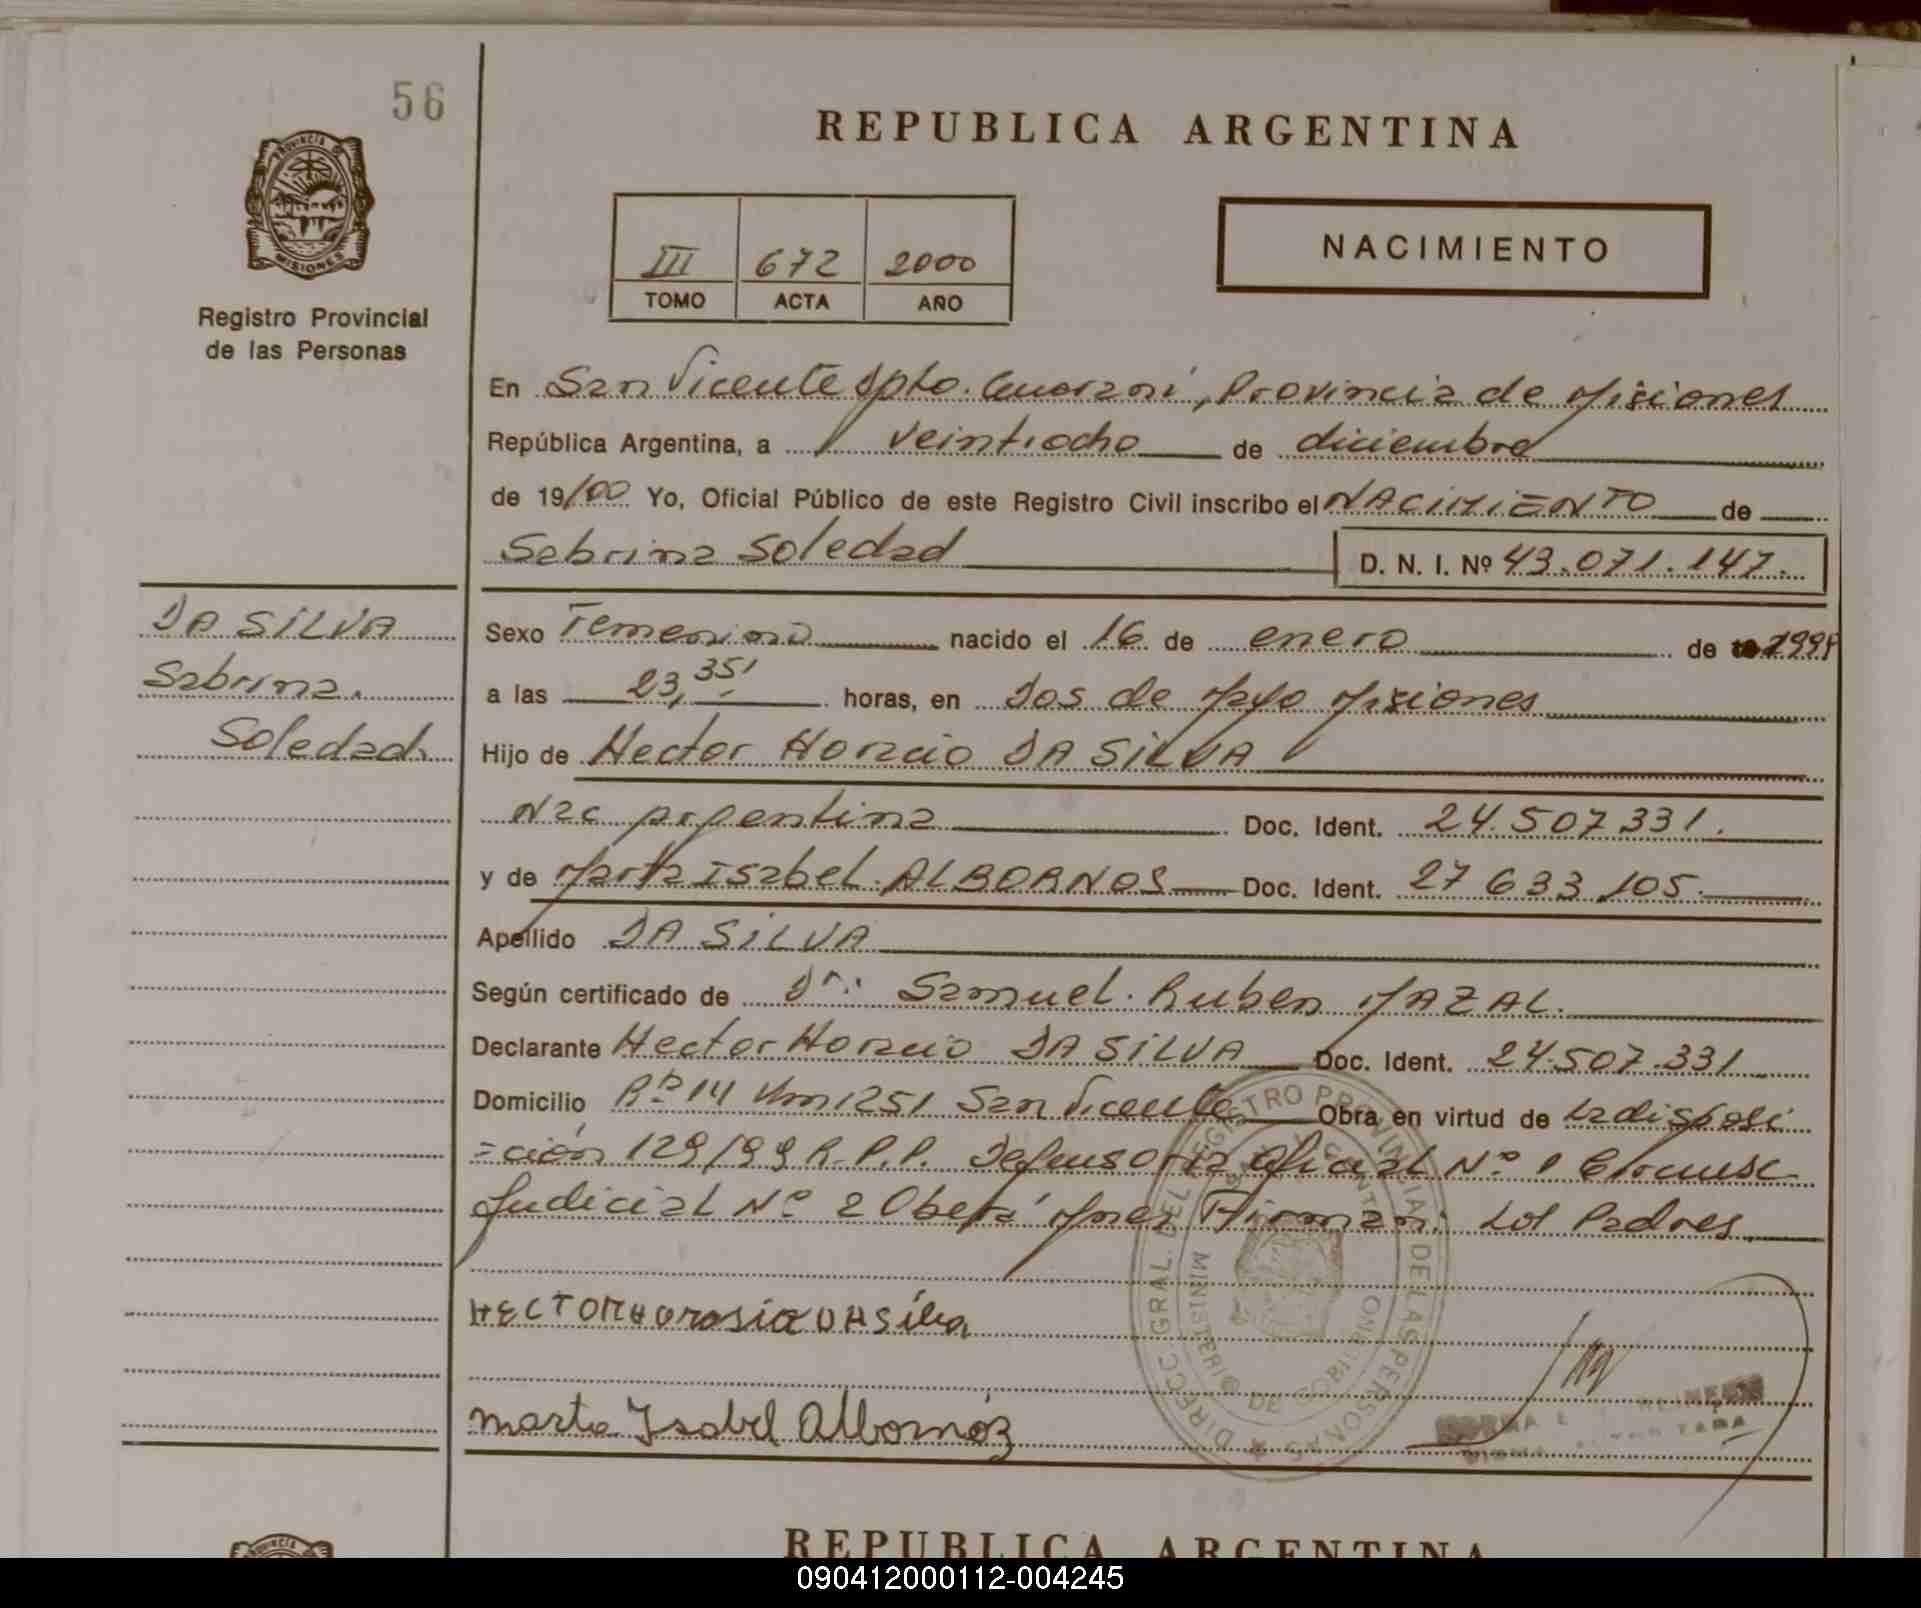 56
REPUBLICA ARGENTINA
PROVINCIA DE
MISIONES
Registro Provincial
de las Personas
III 672 2000
TOMO ACTA AÑO
NACIMIENTO
En San Vicente Dpto. Guaraní, Provincia de Misiones
República Argentina, a veintiocho de diciembre
de 19/00 Yo, Oficial Público de este Registro Civil inscribo el NACIMIENTO de
Sabrina Soledad D. N. I. Nº 43.071.147.
DA SILVA
Sabrina.
Soledad.
Sexo Femenino nacido el 16 de enero de 1998
a las 23,35' horas, en Dos de Mayo Misiones
Hijo de Hector Horacio DA SILVA
Nac Argentina Doc. Ident. 24.507331.
y de Marta Isabel ALBORNOS Doc. Ident. 27 633 105.
Apellido DA SILVA
Según certificado de Dr. Samuel Ruben MAZAL.
Declarante Hector Horacio DA SILVA Doc. Ident. 24.507.331
Domicilio Rta 14 Km 1251 San Vicente Obra en virtud de la disposi
=ción 129/99 R.P.P. Defensoria Oficial Nº 1 Circunsc
Judicial Nº 2 Oberá Mnes Firman: Los Padres
HECTOR Horasio DASilva
marta Isabel Albornóz
DIRECC. GRAL. DEL REGISTRO PROVINCIAL DE LAS PERSONAS
MINISTERIO DE GOBIERNO
REPUBLICA ARGENTINA
090412000112-004245